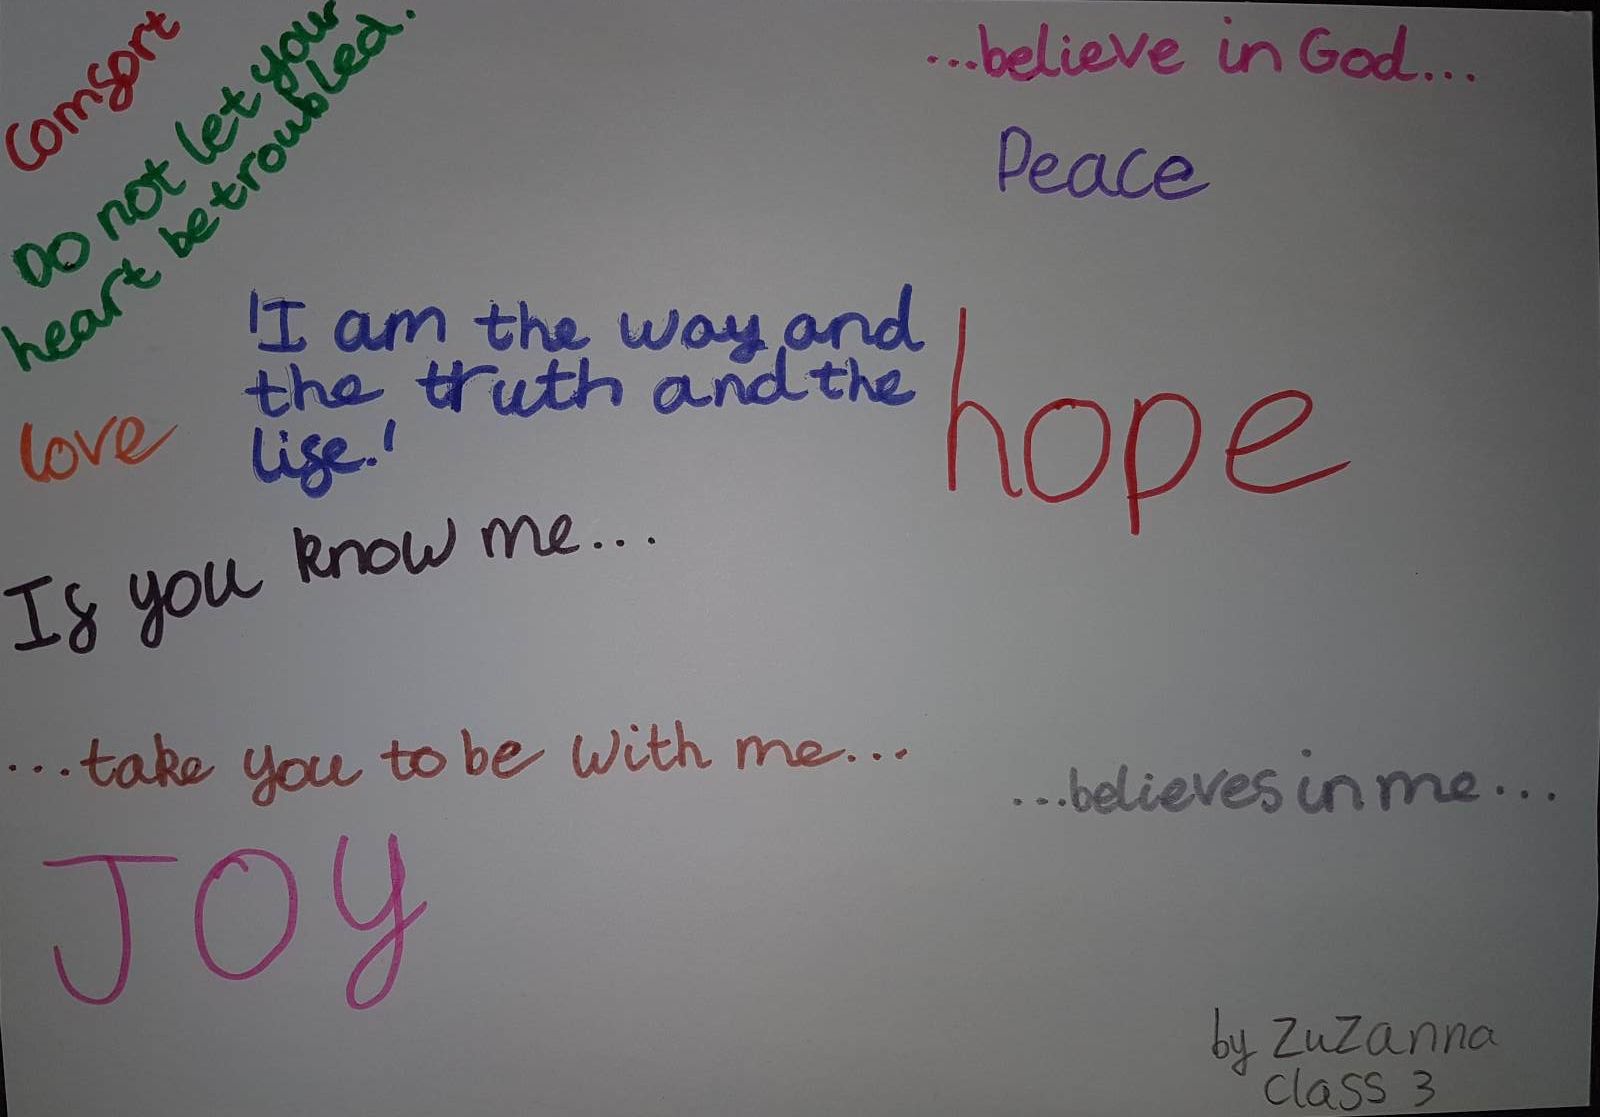 Comfort
Do not let your
heart be troubled.
...believe in God...
Peace
'I am the way and
the truth and the
life.'
love
hope
If you know me...
...take you to be with me...
...believes in me...
JOY
by Zuzanna
Class 3